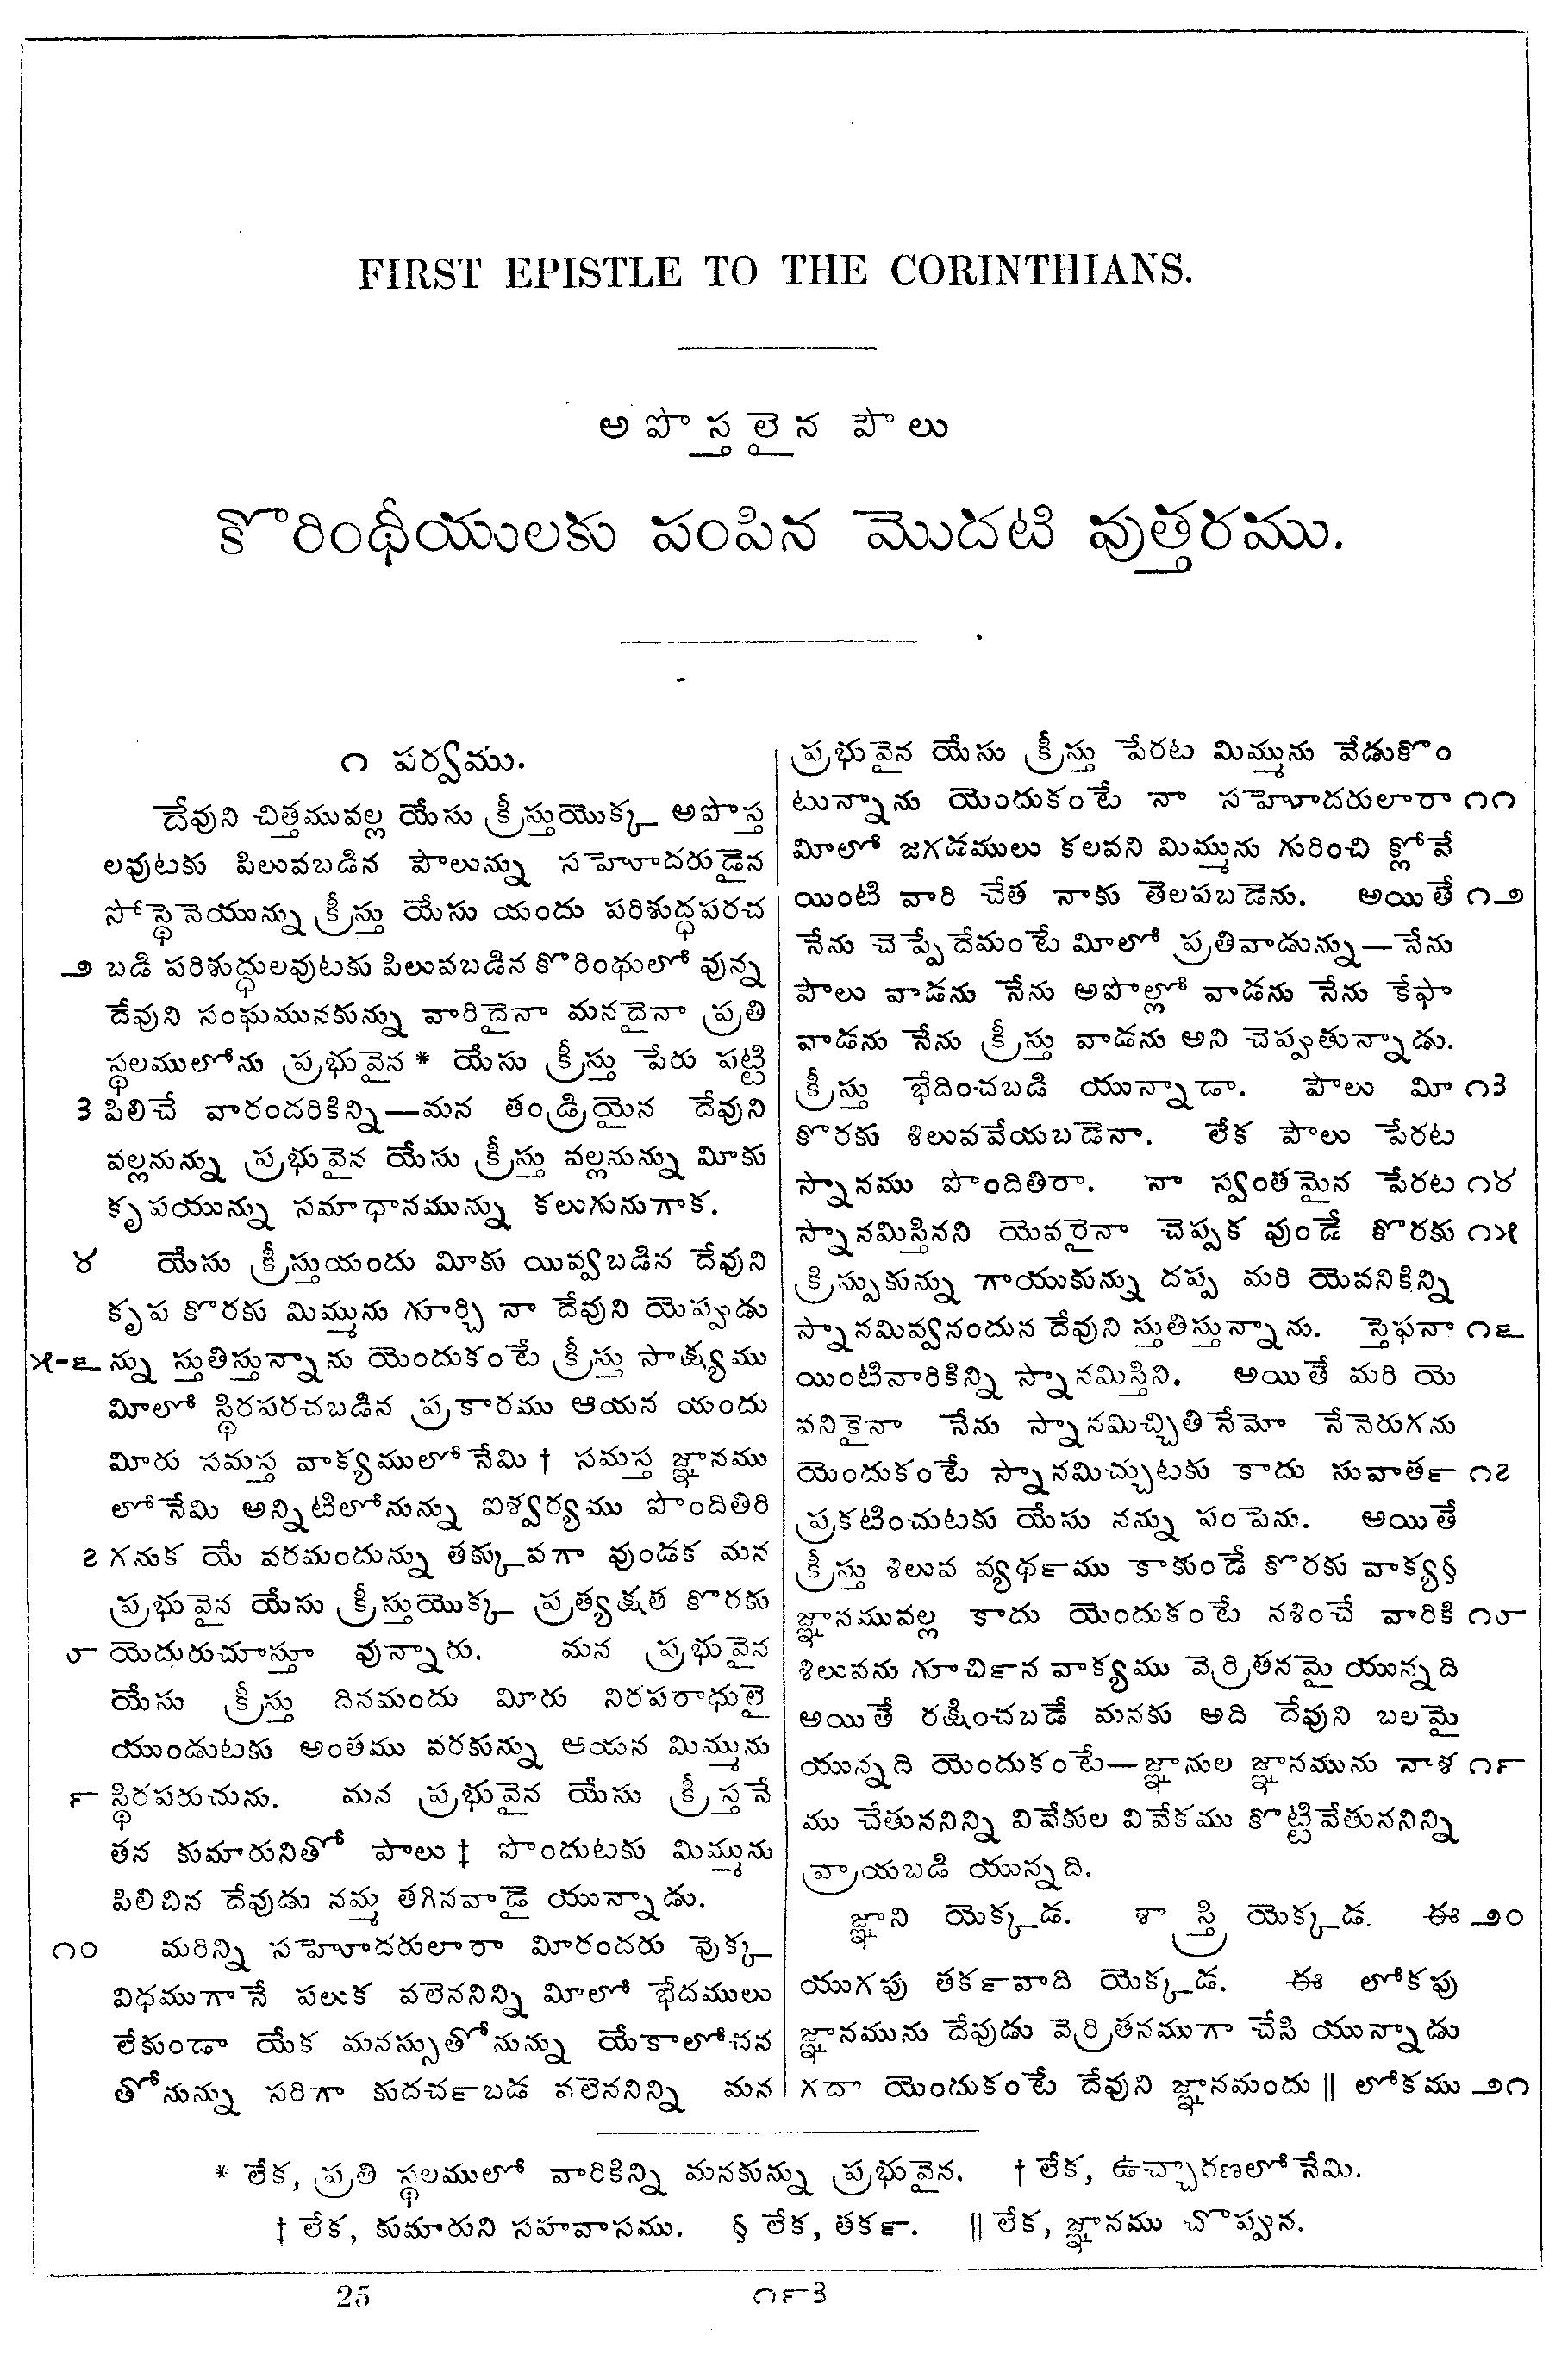 FIRST EPISTLE TO THE CORINTHIANS.
అపొస్తలైన పౌలు
కొరింథీయులకు పంపిన మొదటి వుత్తరము.
౧ పర్వము.
దేవుని చిత్తమువల్ల యేసు క్రీస్తుయొక్క అపొస్త
లవుటకు పిలువబడిన పౌలున్ను సహోదరుడైన
సోస్థెనెయున్ను క్రీస్తు యేసు యందు పరిశుద్ధపరచ
౨ బడి పరిశుద్ధులవుటకు పిలువబడిన కొరింథులో వున్న
దేవుని సంఘమునకున్ను వారిదైనా మనదైనా ప్రతి
స్థలములోను ప్రభువైన * యేసు క్రీస్తు పేరు పట్టి
౩ పిలిచే వారందరికిన్ని—మన తండ్రియైన దేవుని
వల్లనున్ను ప్రభువైన యేసు క్రీస్తు వల్లనున్ను మీకు
కృపయున్ను సమాధానమున్ను కలుగునుగాక.
౪ యేసు క్రీస్తుయందు మీకు యివ్వబడిన దేవుని
కృప కొరకు మిమ్మును గూర్చి నా దేవుని యెప్పుడు
౫-౬ న్ను స్తుతిస్తున్నాను యెందుకంటే క్రీస్తు సాక్ష్యము
మీలో స్థిరపరచబడిన ప్రకారము ఆయన యందు
మీరు సమస్త వాక్యములోనేమి † సమస్త జ్ఞానము
లోనేమి అన్నిటిలోనున్ను ఐశ్వర్యము పొందితిరి
౭ గనుక యే వరమందున్ను తక్కువగా వుండక మన
ప్రభువైన యేసు క్రీస్తుయొక్క ప్రత్యక్షత కొరకు
౮ యెదురుచూస్తూ వున్నారు. మన ప్రభువైన
యేసు క్రీస్తు దినమందు మీరు నిరపరాధులై
యుండుటకు అంతము వరకున్ను ఆయన మిమ్మును
౯ స్థిరపరుచును. మన ప్రభువైన యేసు క్రీస్తనే
తన కుమారునితో పాలు ‡ పొందుటకు మిమ్మును
పిలిచిన దేవుడు నమ్మ తగినవాడై యున్నాడు.
౧౦ మరిన్ని సహోదరులారా మీరందరు వొక్క
విధముగానే పలుక వలెననిన్ని మీలో భేదములు
లేకుండా యేక మనస్సుతోనున్ను యేకాలోచన
తోనున్ను సరిగా కుదర్చబడ వలెననిన్ని మన
ప్రభువైన యేసు క్రీస్తు పేరట మిమ్మును వేడుకొం
టున్నాను యెందుకంటే నా సహోదరులారా ౧౧
మీలో జగడములు కలవని మిమ్మును గురించి క్లోవే
యింటి వారి చేత నాకు తెలపబడెను. అయితే ౧౨
నేను చెప్పేదేమంటే మీలో ప్రతివాడున్ను—నేను
పౌలు వాడను నేను అపొల్లో వాడను నేను కేఫా
వాడను నేను క్రీస్తు వాడను అని చెప్పుతున్నాడు.
క్రీస్తు భేదించబడి యున్నాడా. పౌలు మీ ౧౩
కొరకు శిలువవేయబడెనా. లేక పౌలు పేరట
స్నానము పొందితిరా. నా స్వంతమైన పేరట ౧౪
స్నానమిస్తినని యెవరైనా చెప్పక వుండే కొరకు ౧౫
క్రిస్పుకున్ను గాయుకున్ను దప్ప మరి యెవనికిన్ని
స్నానమివ్వనందున దేవుని స్తుతిస్తున్నాను. స్తెఫనా ౧౬
యింటివారికిన్ని స్నానమిస్తిని. అయితే మరి యె
వనికైనా నేను స్నానమిచ్చితినేమో నేనెరుగను
యెందుకంటే స్నానమిచ్చుటకు కాదు సువార్త ౧౭
ప్రకటించుటకు యేసు నన్ను పంపెను. అయితే
క్రీస్తు శిలువ వ్యర్థము కాకుండే కొరకు వాక్య §
జ్ఞానమువల్ల కాదు యెందుకంటే నశించే వారికి ౧౮
శిలువను గూర్చిన వాక్యము వెర్రితనమై యున్నది
అయితే రక్షించబడే మనకు అది దేవుని బలమై
యున్నది యెందుకంటే—జ్ఞానుల జ్ఞానమును నాశ ౧౯
ము చేతుననిన్ని వివేకుల వివేకము కొట్టివేతుననిన్ని
వ్రాయబడి యున్నది.
జ్ఞాని యెక్కడ. శాస్త్రి యెక్కడ. ఈ ౨౦
యుగపు తర్కవాది యెక్కడ. ఈ లోకపు
జ్ఞానమును దేవుడు వెర్రితనముగా చేసి యున్నాడు
గదా యెందుకంటే దేవుని జ్ఞానమందు || లోకము ౨౧
* లేక, ప్రతి స్థలములో వారికిన్ని మనకున్ను ప్రభువైన. † లేక, ఉచ్చారణలోనేమి.
‡ లేక, కుమారుని సహవాసము. § లేక, తర్క. || లేక, జ్ఞానము చొప్పున.
25 ౧౯౩